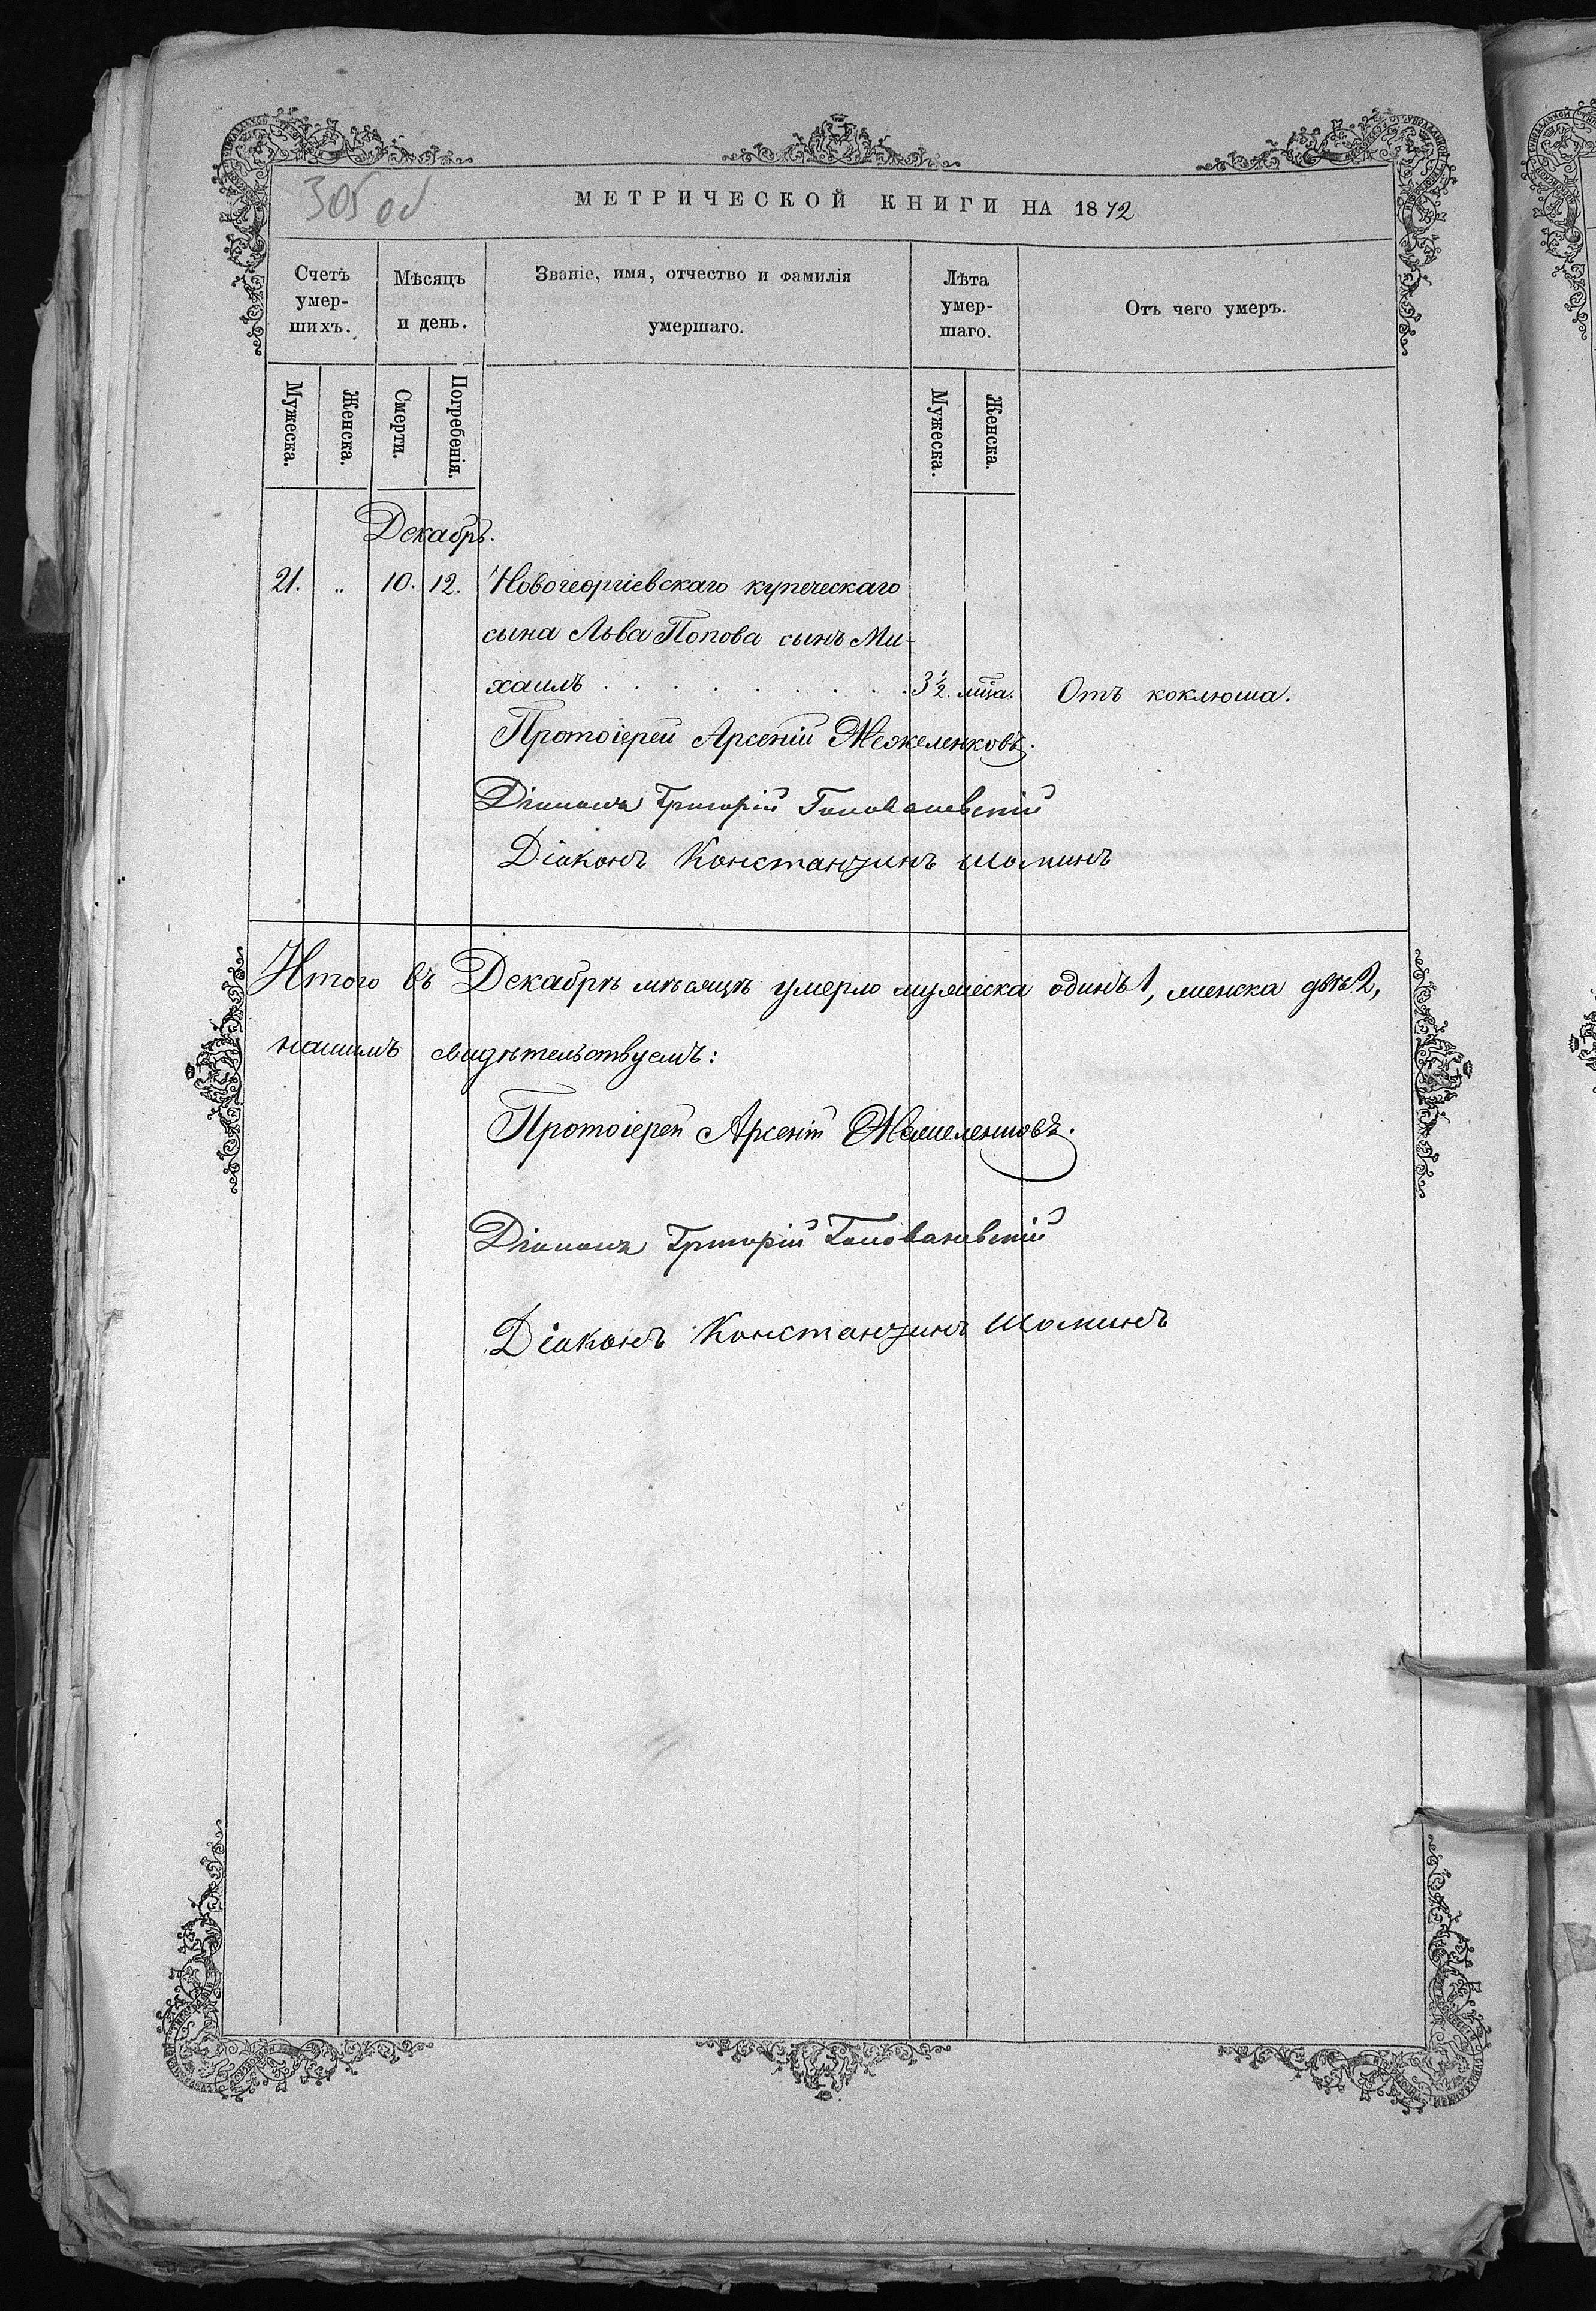 305 об
МЕТРИЧЕСКОЙ КНИГИ НА 1872
Счетъ умер-шихъ.
Мѣсяцъ и день.
Званіе, имя, отчество и фамилія умершаго.
Лѣта умер-шаго.
Отъ чего умеръ.
Мужеска.
Женска.
Смерти.
Погребенія.
Мужеска.
Женска.
Декабрь.
21. „ 10. 12. Новогеоргіевскаго купеческаго
сына Льва Попова сынъ Ми-
хаилъ . . . . . . . . 3½ мца. Отъ коклюша.
Протоіерей Арсеній
Діаконъ Григорій
Діаконъ Константинъ
Итого въ Декабрѣ мѣсяцѣ умерло мужеска одинъ 1, женска двѣ 2,
свидѣтельствуемъ:
Протоіерей Арсеній
Діаконъ Григорій
Діаконъ Константинъ